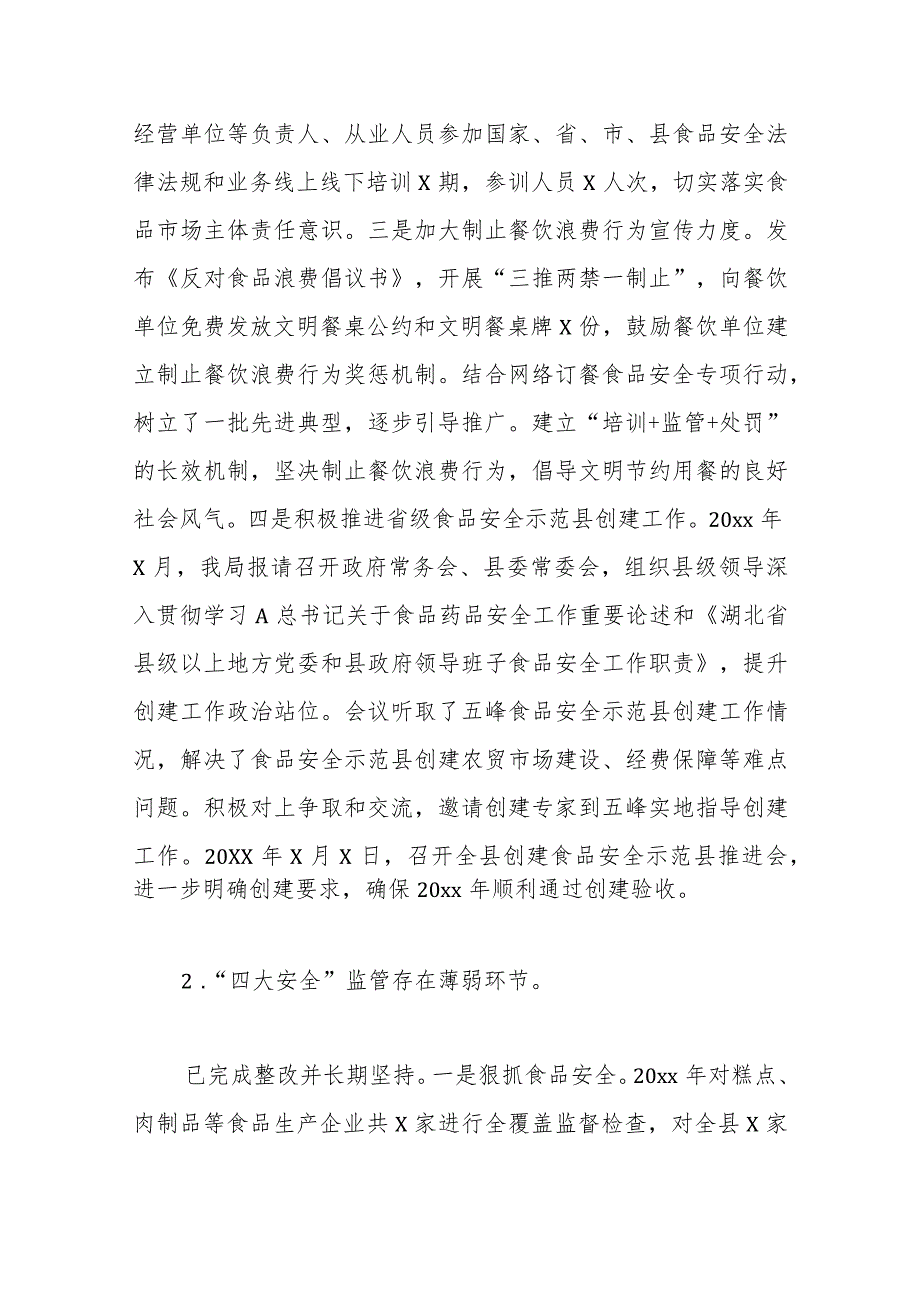 经营单位等负责人、从业人员参加国家、省、市、县食品安全法
律法规和业务线上线下培训X期，参训人员X人次，切实落实食
品市场主体责任意识。三是加大制止餐饮浪费行为宣传力度。发
布《反对食品浪费倡议书》，开展“三推两禁一制止”，向餐饮
单位免费发放文明餐桌公约和文明餐桌牌X份，鼓励餐饮单位建
立制止餐饮浪费行为奖惩机制。结合网络订餐食品安全专项行动，
树立了一批先进典型，逐步引导推广。建立“培训+监管+处罚”
的长效机制，坚决制止餐饮浪费行为，倡导文明节约用餐的良好
社会风气。四是积极推进省级食品安全示范县创建工作。20xx年
X月，我局报请召开政府常务会、县委常委会，组织县级领导深
入贯彻学习A总书记关于食品药品安全工作重要论述和《湖北省
县级以上地方党委和县政府领导班子食品安全工作职责》，提升
创建工作政治站位。会议听取了五峰食品安全示范县创建工作情
况，解决了食品安全示范县创建农贸市场建设、经费保障等难点
问题。积极对上争取和交流，邀请创建专家到五峰实地指导创建
工作。20XX年X月X日，召开全县创建食品安全示范县推进会，
进一步明确创建要求，确保20xx年顺利通过创建验收。
2.“四大安全”监管存在薄弱环节。
已完成整改并长期坚持。一是狠抓食品安全。20xx年对糕点、
肉制品等食品生产企业共X家进行全覆盖监督检查，对全县X家